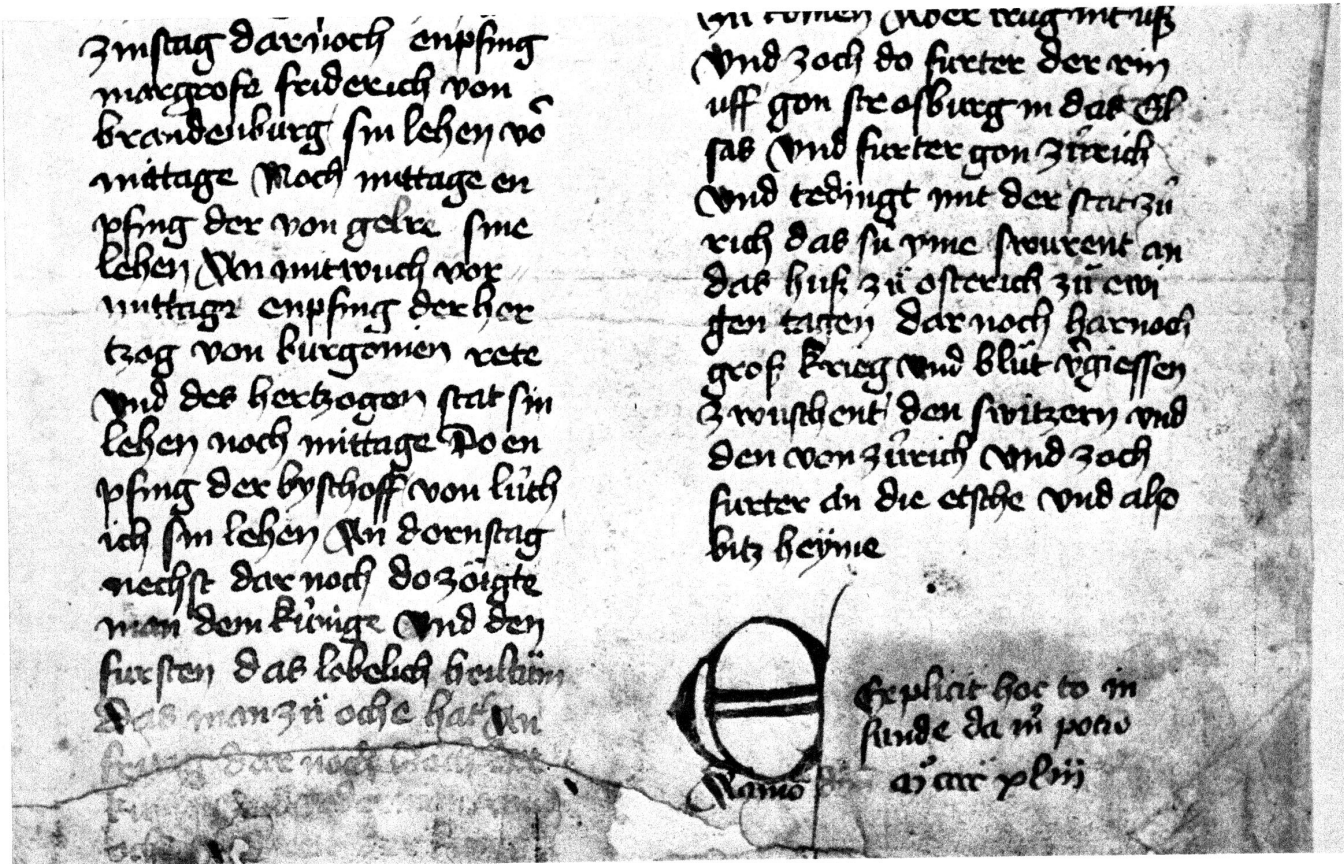 zinstag darnoch enpfing
margrofe friderich von
brandenburg sin lehen vō
mittage Noch mittage en
pfing der von gelre sine
lehen An mitwuch vor
mittage enpfing der her
tzog von burgonien rete
vnd des hertzogen stat sin
lehen noch mittage Do en
pfing der byschoff von lůth
ich sin lehen An dornstag
nechst dar noch do zöigte
man dem kůnige Vnd den
fursten das lobelich heiltům
das man zů oche hat An
dar noch
komen Aber
Vnd zoch do furter der rin
uff gon strosburg in das El
sas Vnd furter gon zůrich
vnd tedingt mit der stat zů
rich das sů yme swurent an
das huß zů osterich zů ewi
gen tagen dar noch harnoch
groß krieg vnd blůt v͛giessen
zwuschent den switzern vnd
den von zůrich Vnd zoch
furter an die etsche vnd also
bitz heyme
Explicit hoc to in
funde da m̊ potū
Anno
xliii